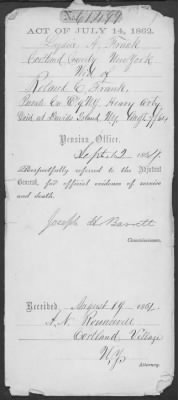 No. 61,499
ACT OF JULY 14, 1862.
A. Frank
Cortland County New York
Wid. of
Roland E. Frank.
Private Co. N.Y. Heavy Arty.
Died at Davids Island N.Y.
Pension Office,
Sept. 12 1864.
Respectfully referred to the Adjutant
General, for official evidence of service
and death.
Joseph H Barrett
Commissioner.
Received, August 19 1864.
A. N.
Cortland Village
N.Y.
Attorney.